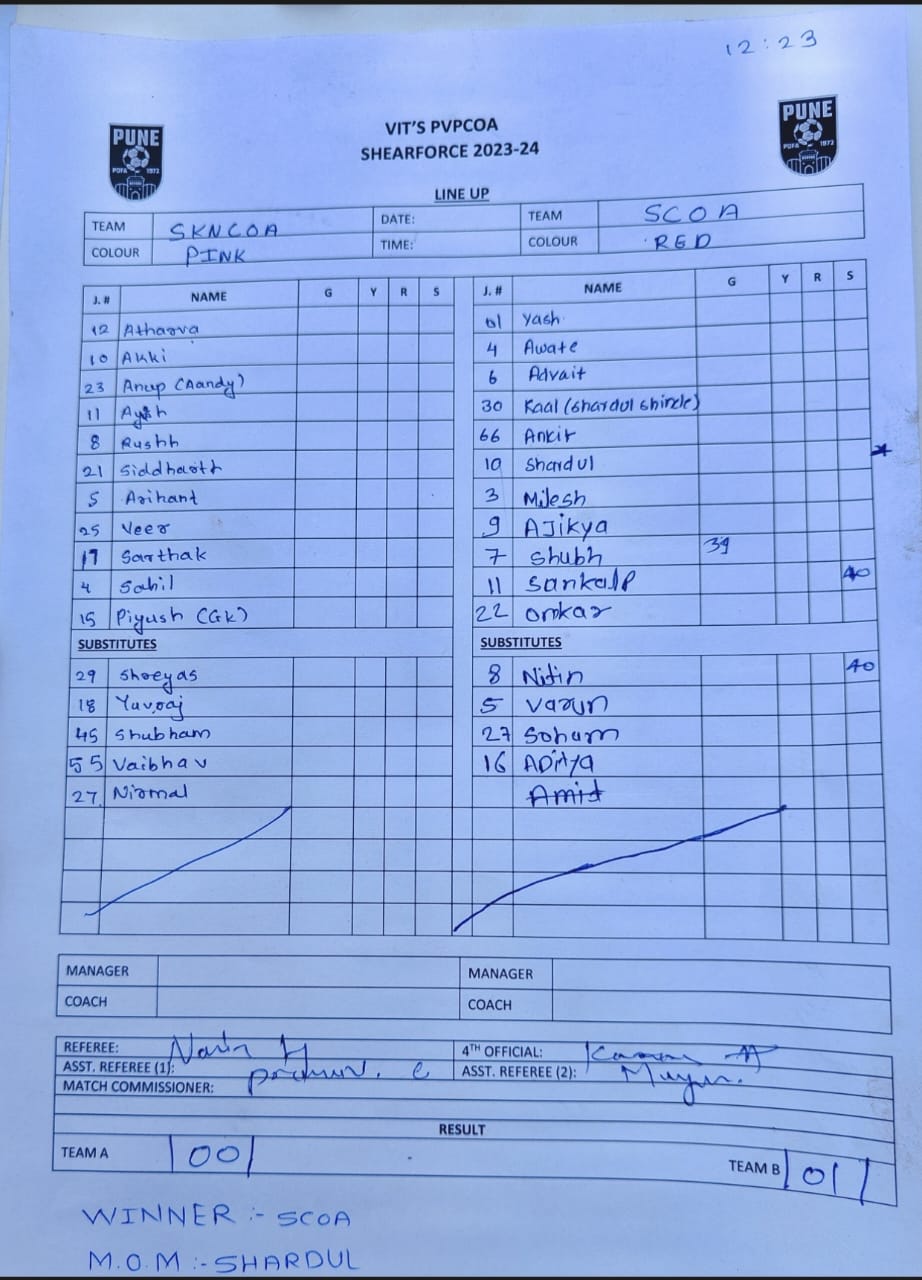 12:23
PUNE
PDFA 1972
PUNE
PDFA 1972
VIT'S PVPCOA
SHEARFORCE 2023-24
LINE UP
TEAM SKNCOA DATE: TEAM SCOA
COLOUR PINK TIME: COLOUR RED
J. # NAME G Y R S J. # NAME G Y R S
12 Atharva 01 Yash
10 Akki 4 Awate
23 Anup (Aandy) 6 Advait
11 Ayush 30 Kaal (Shardul Shinde)
8 Rushh 66 Ankit
21 Siddharth 10 Shardul
5 Arihant 3 Milesh
25 Veer 9 AJikya
17 Sarthak 7 Shubh 39
4 Sahil 11 Sankalp 40
15 Piyush (GK) 22 Omkar
SUBSTITUTES SUBSTITUTES
29 Shreyas 8 Nitin 40
18 Yuvraj 5 Varun
45 Shubham 27 Soham
55 Vaibhav 16 ADitya
27 Nirmal Amit
MANAGER MANAGER
COACH COACH
REFEREE: 4TH OFFICIAL:
ASST. REFEREE (1): ASST. REFEREE (2):
MATCH COMMISSIONER:
RESULT
TEAM A 00 TEAM B 01
WINNER :- SCOA
M.O.M :- SHARDUL